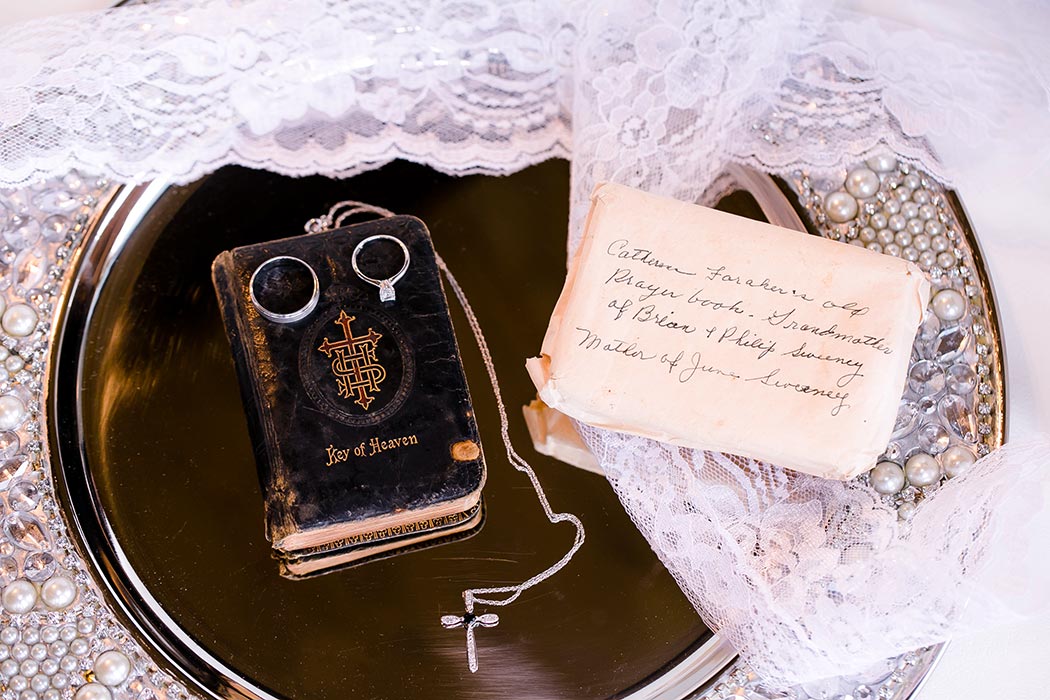 IHS
Key of Heaven
Catteren Foraker's old
Prayer book - Grandmother
of Brian & Philip Sweeney
Mother of June Sweeney